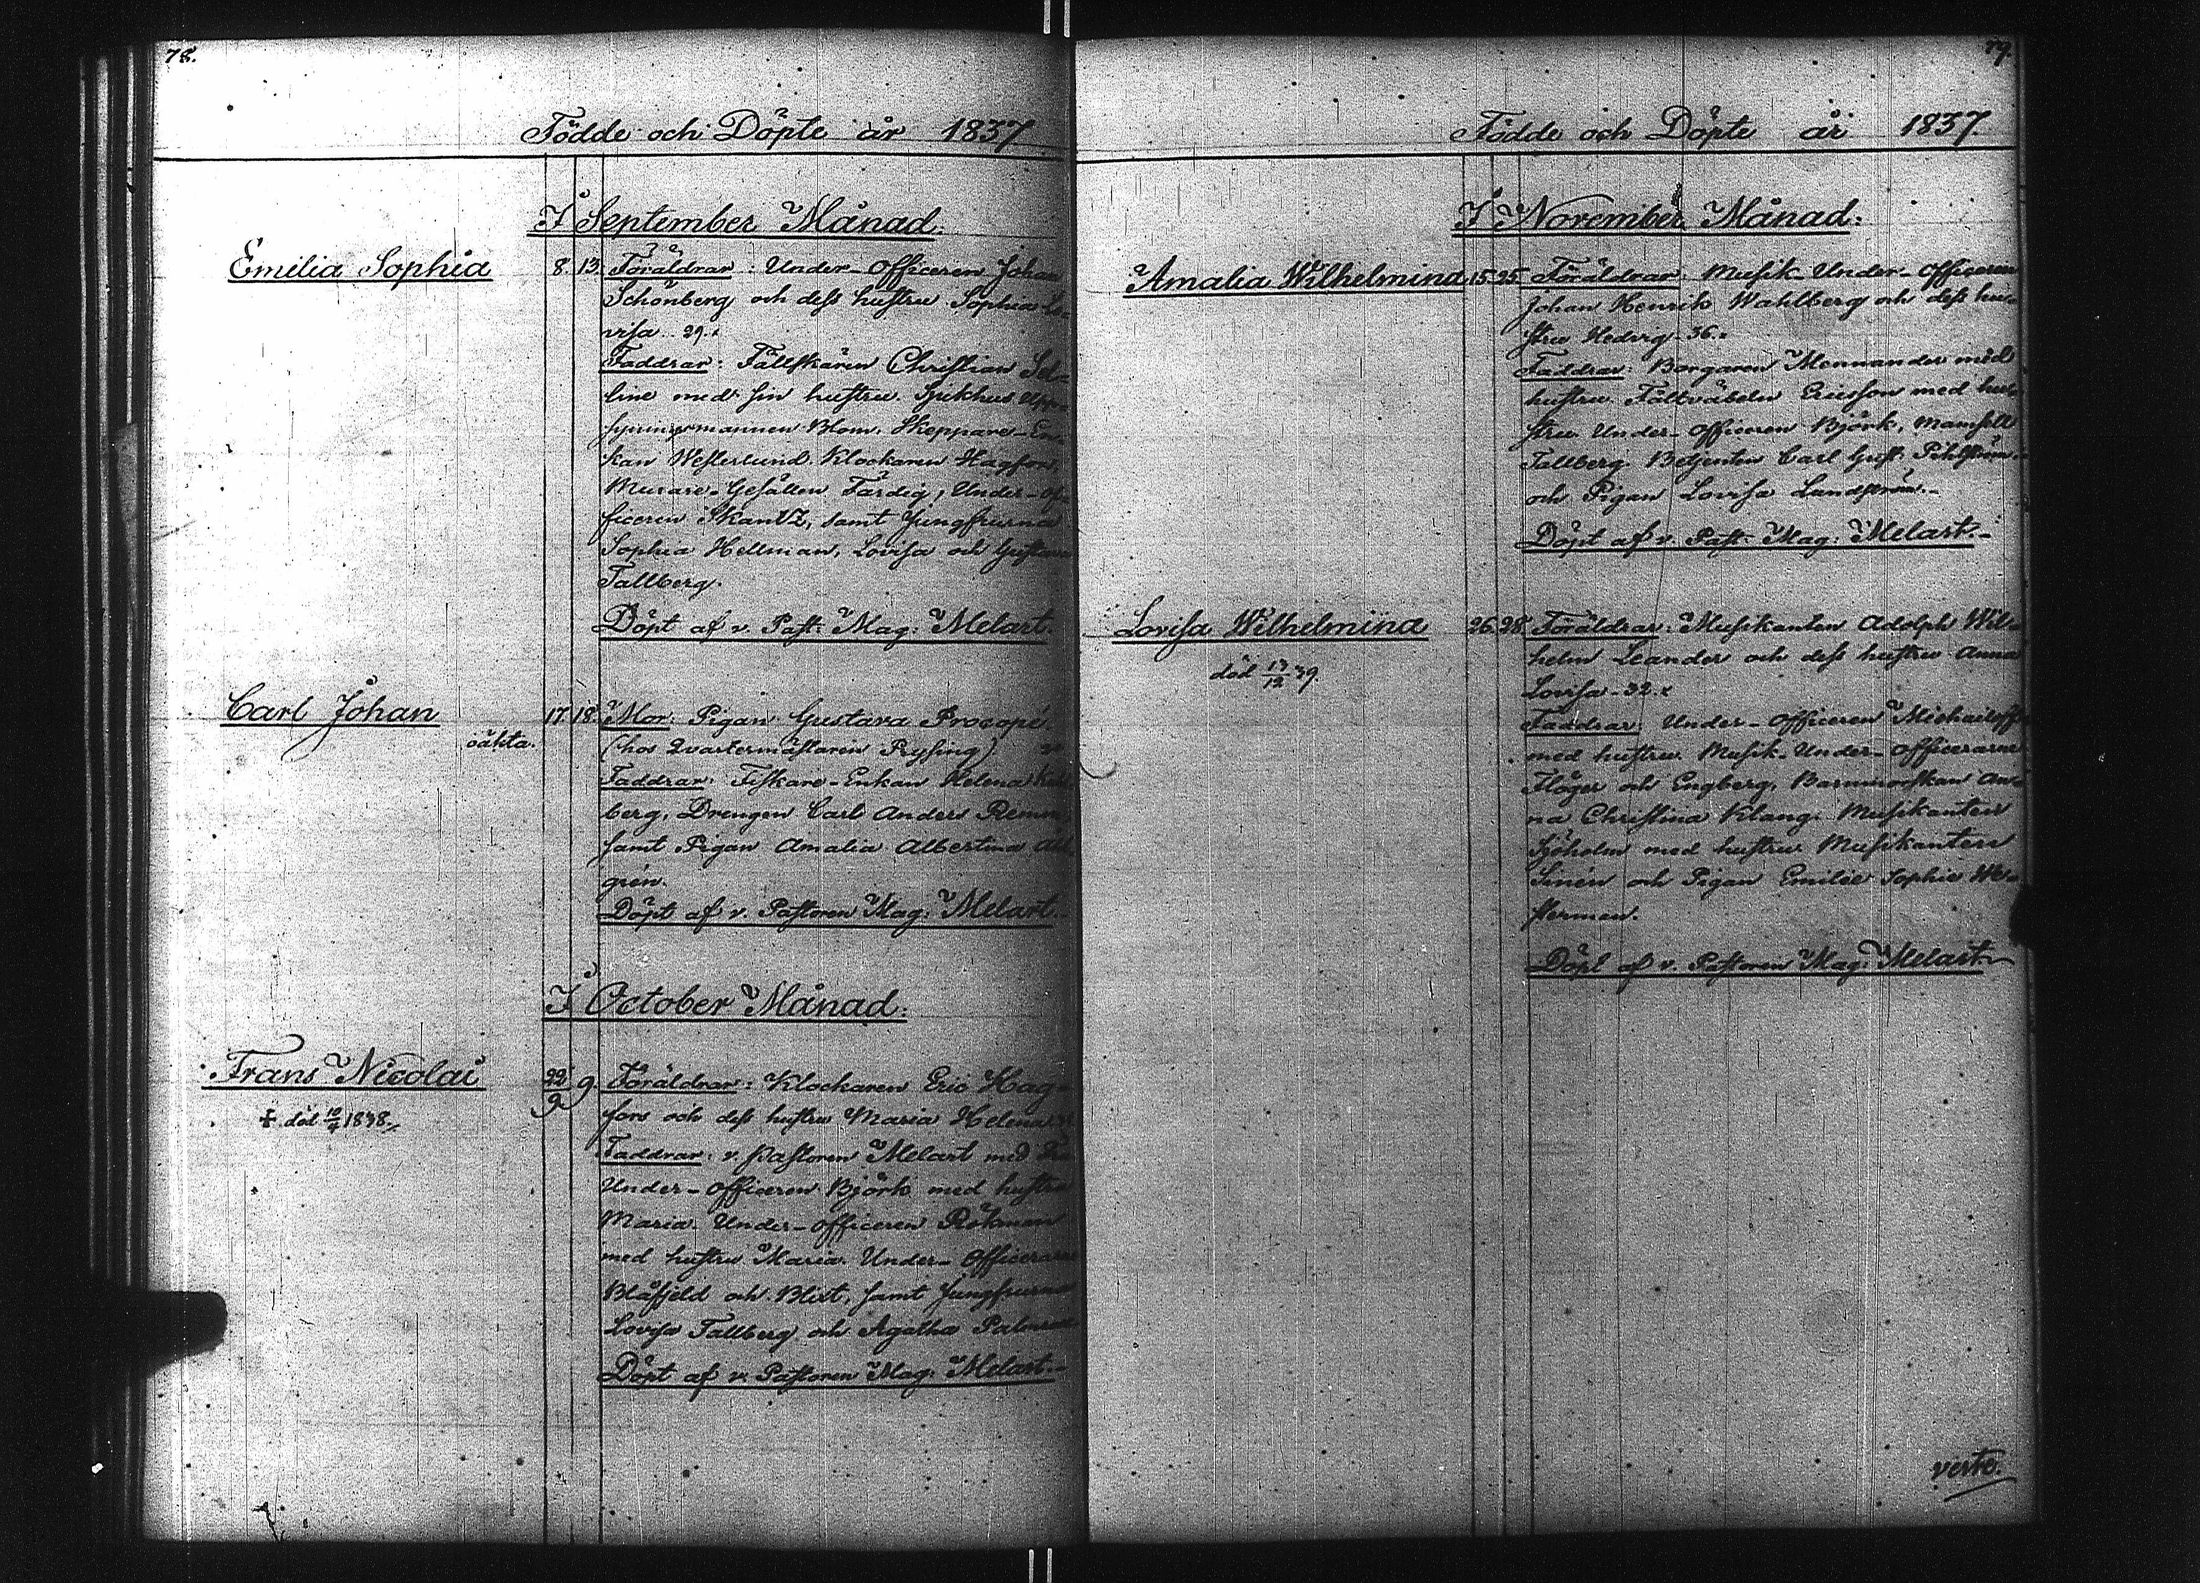 78.
Födde och Döpte år 1837
I September Månad.
Emilia Sophia 8. 13. Föräldrar: Under-Officeren Johan
Schönberg och dess hustru Sophia Lo-
visa. 29.
Faddrar: Fältskären Christian
line med sin hustru. Sjukhus Upp-
syningsmannen Blom. Skeppare-En-
kan Westerlund. Klockaren Hagfors,
Murare-Gesällen Färdig, Under-Of-
ficeren Skantz, samt Jungfrurna
Sophia Hellman, Lovisa och Gustava
Tallberg.
Döpt af v. Past: Mag: Melart.
Carl Johan 17. 18. Mor: Pigan Gustava Procopé
oäkta. (hos Qvartermästaren Rysing)
Faddrar: Fiskare-Enkan Helena
berg, Drengen Carl Anders
samt Pigan Amalia Albertina
grén.
Döpt af v. Pastoren Mag: Melart.
I October Månad.
Frans Nicolai 22/9 9. Föräldrar: Klockaren Eric Hag-
+ död 10/4 1838. fors och dess hustru Maria Helena
Faddrar: v. Pastoren Melart med
Under-Officeren Björk med hustru
Maria. Under-Officeren Rökman
med hustru Maria. Under-Officerarne
Blåfjeld och Blist, samt Jungfrurna
Lovisa Tallberg och Agatha
Döpt af v. Pastoren Mag: Melart.
79.
Födde och Döpte år 1837.
I November Månad.
Amalia Wilhelmina 15. 25. Föräldrar: Musik-Under-Officeren
Johan Henrik Wahlberg och dess hu-
stru Hedvig. 36.
Faddrar: Borgaren Mennander med
hustru. Fältväbeln Ericsson med hu-
stru. Under-Officeren Björk, Mamsell
Tallberg. Betjenten Carl Gust. Pihlström
och Pigan Lovisa Lundström.
Döpt af v. Past: Mag: Melart.
Lovisa Wilhelmina 26. 28. Föräldrar: Musikanten Adolph Wil-
död 13/12 39. helm Leander och dess hustru Anna
Lovisa. 32.
Faddrar: Under-Officeren Michailoff
med hustru. Musik-Under-Officerarne
Flöger och Engberg. Barnmorskan An-
na Christina Klang. Musikanten
Sjöholm med hustru. Musikanten
Sinén och Pigan Emilie Sophie We-
sterman.
Döpt af v. Pastoren Mag: Melart
verte.